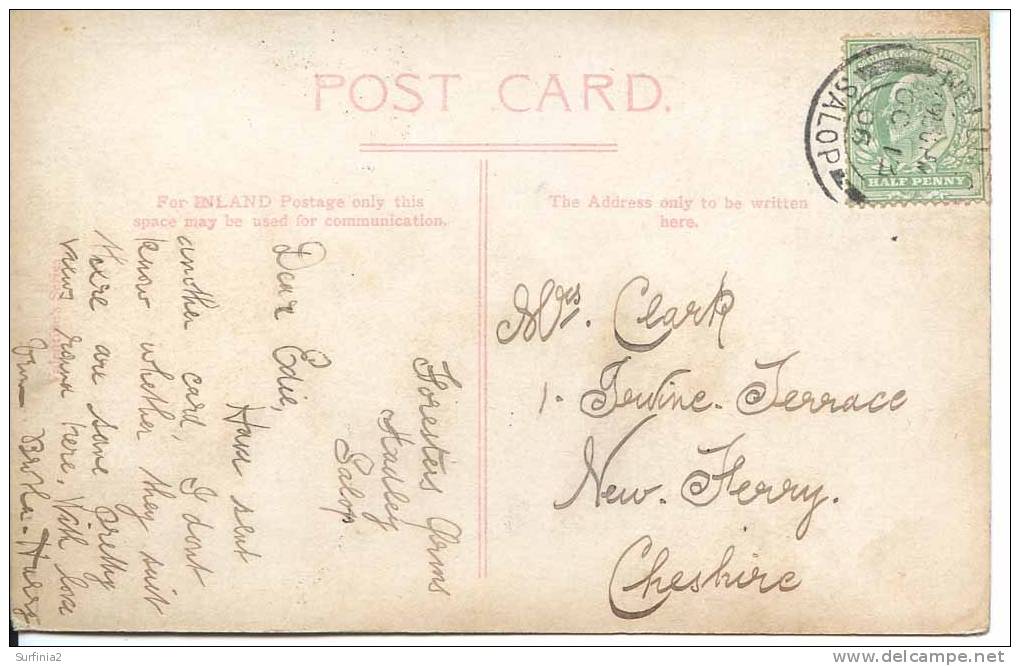 POST CARD.
For INLAND Postage only this
space may be used for communication.
The Address only to be written
here.
HALF PENNY
SALOP
OC 17
06
Mrs. Clark
1. Irvine. Terrace
New. Ferry.
Cheshire
Foresters Arms
Salop.
Dear Edie,
Have sent
another card, I dont
know whether they suit
there are some pretty
views round here. With love
from Brother - Harry
Surfinia2
delcampe.net